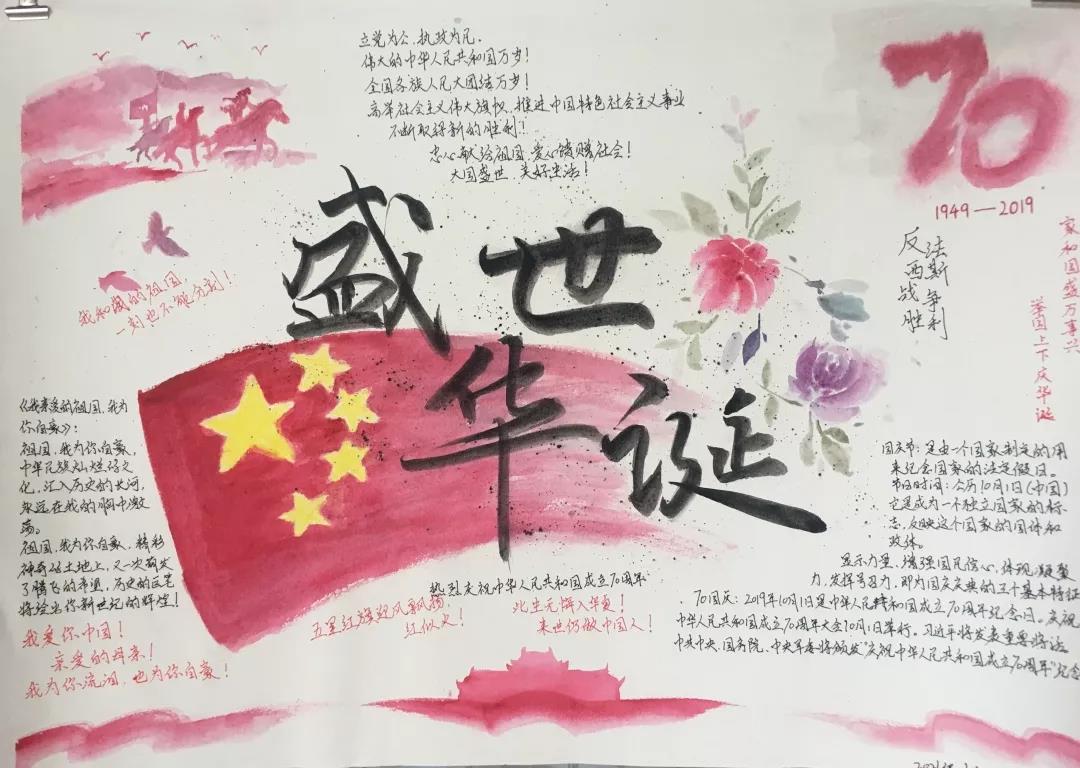 立党为公，执政为民．
伟大的中华人民共和国万岁！
全国各族人民大团结万岁！
高举社会主义伟大旗帜，推进中国特色社会主义事业
不断取得新的胜利！
忠心献给祖国，爱心馈赠社会！
大国盛世，美好生活！
70
1949—2019
反法
西斯
战争
胜利
家和国盛万事兴
举国上下庆华诞
盛世
华诞
我和我的祖国
一刻也不能分割！
《我亲爱的祖国，我为
你自豪》：
祖国，我为你自豪，
中华民族灿烂的文
化，汇入历史的长河，
永远在我的胸中激
荡。
祖国，我为你自豪，精彩
神奇的土地上，又一次萌发
了腾飞的希望，历史的巨笔
将绘出你新世纪的辉煌！
我爱你中国！
亲爱的母亲！
我为你流泪，也为你自豪！
热烈庆祝中华人民共和国成立70周年
五星红旗迎风飘扬
红似火！
此生无悔入华夏！
来世仍做中国人！
国庆节：是由一个国家制定的用
来纪念国家的法定假日。
节日时间：公历10月1日（中国）
它是成为一个独立国家的标
志，反映这个国家的国体和
政体。
显示力量、增强国民信心，体现凝聚
力，发挥号召力，即为国庆庆典的三个基本特征
70国庆：2019年10月1日是中华人民共和国成立70周年纪念日。庆祝
中华人民共和国成立70周年大会10月1日举行。习近平将发表重要讲话
中共中央、国务院、中央军委将颁发"庆祝中华人民共和国成立70周年"纪念